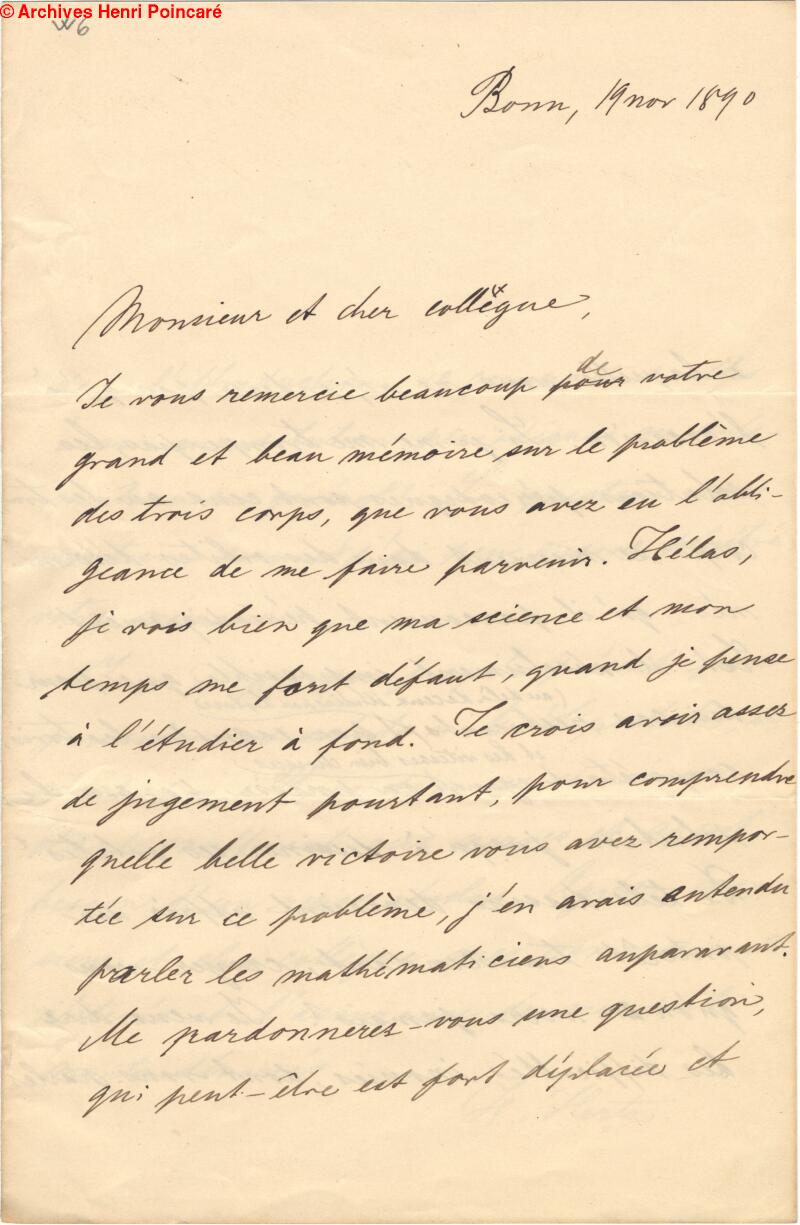 © Archives Henri Poincaré
Bonn, 19 nov 1890
Monsieur et cher collègue,
Je vous remercie beaucoup pour de votre
grand et beau mémoire sur le problème
des trois corps, que vous avez eu l'obli-
geance de me faire parvenir. Hélas,
je vois bien que ma science et mon
temps me font défaut, quand je pense
à l'étudier à fond. Je crois avoir assez
de jugement pourtant, pour comprendre
quelle belle victoire vous avez rempor-
tée sur ce problème, j'en avais entendu
parler les mathématiciens auparavant.
Me pardonnerez-vous une question,
qui peut-être est fort déplacée et